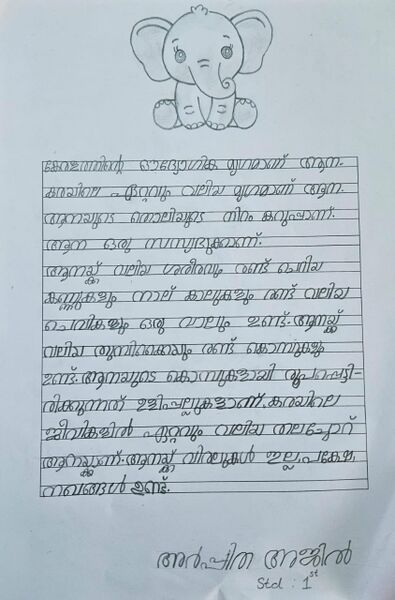 കേരളത്തിന്റെ ഔദ്യോഗിക മൃഗമാണ് ആന.
കരയിലെ ഏറ്റവും വലിയ മൃഗമാണ് ആന.
ആനയുടെ തൊലിയുടെ നിറം കറുപ്പാണ്.
ആന ഒരു സസ്യഭുക്കാണ്.
ആനയ്ക്ക് വലിയ ശരീരവും രണ്ട് ചെറിയ
കണ്ണുകളും നാല് കാലുകളും രണ്ട് വലിയ
ചെവികളും ഒരു വാലും ഉണ്ട്. ആനയ്ക്ക്
വലിയ തുമ്പിക്കൈയും രണ്ട് കൊമ്പുകളും
ഉണ്ട്. ആനയുടെ കൊമ്പുകളായി രൂപപ്പെട്ടി-
രിക്കുന്നത് ഉളിപ്പല്ലുകളാണ്. കരയിലെ
ജീവികളിൽ ഏറ്റവും വലിയ തലച്ചോറ്
ആനയ്ക്കാണ്. ആനയ്ക്ക് വിരലുകൾ ഇല്ല, പക്ഷേ,
നഖങ്ങൾ ഉണ്ട്.
അർപ്പിത അജിൽ
Std : 1st